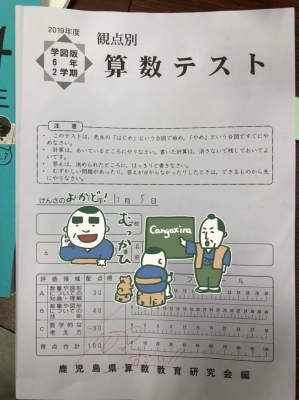 2019年度
学図版
6年
2学期
観点別
算数テスト
注意
・このテストは、先生の「はじめ」という合図で始め、「やめ」という合図ですぐにやめなさい。
・計算は、あいているところにやりなさい。書いた計算は、消さないで残しておいてよいです。
・答えは、決められたところに、はっきりと書きなさい。
・むずかしい問題があったり、答えが分からなかったりしたときは、できるものから先にやりなさい。
12月5日
むっかひ
Cangoxina
6
名前
評価領域
配点
得
プロフィール
A
数量や図形についての知識・理解
30
B
数量や図形についての技能
40
C
数学的な考え方
30
得点合計
100
鹿児島県算数教育研究会編